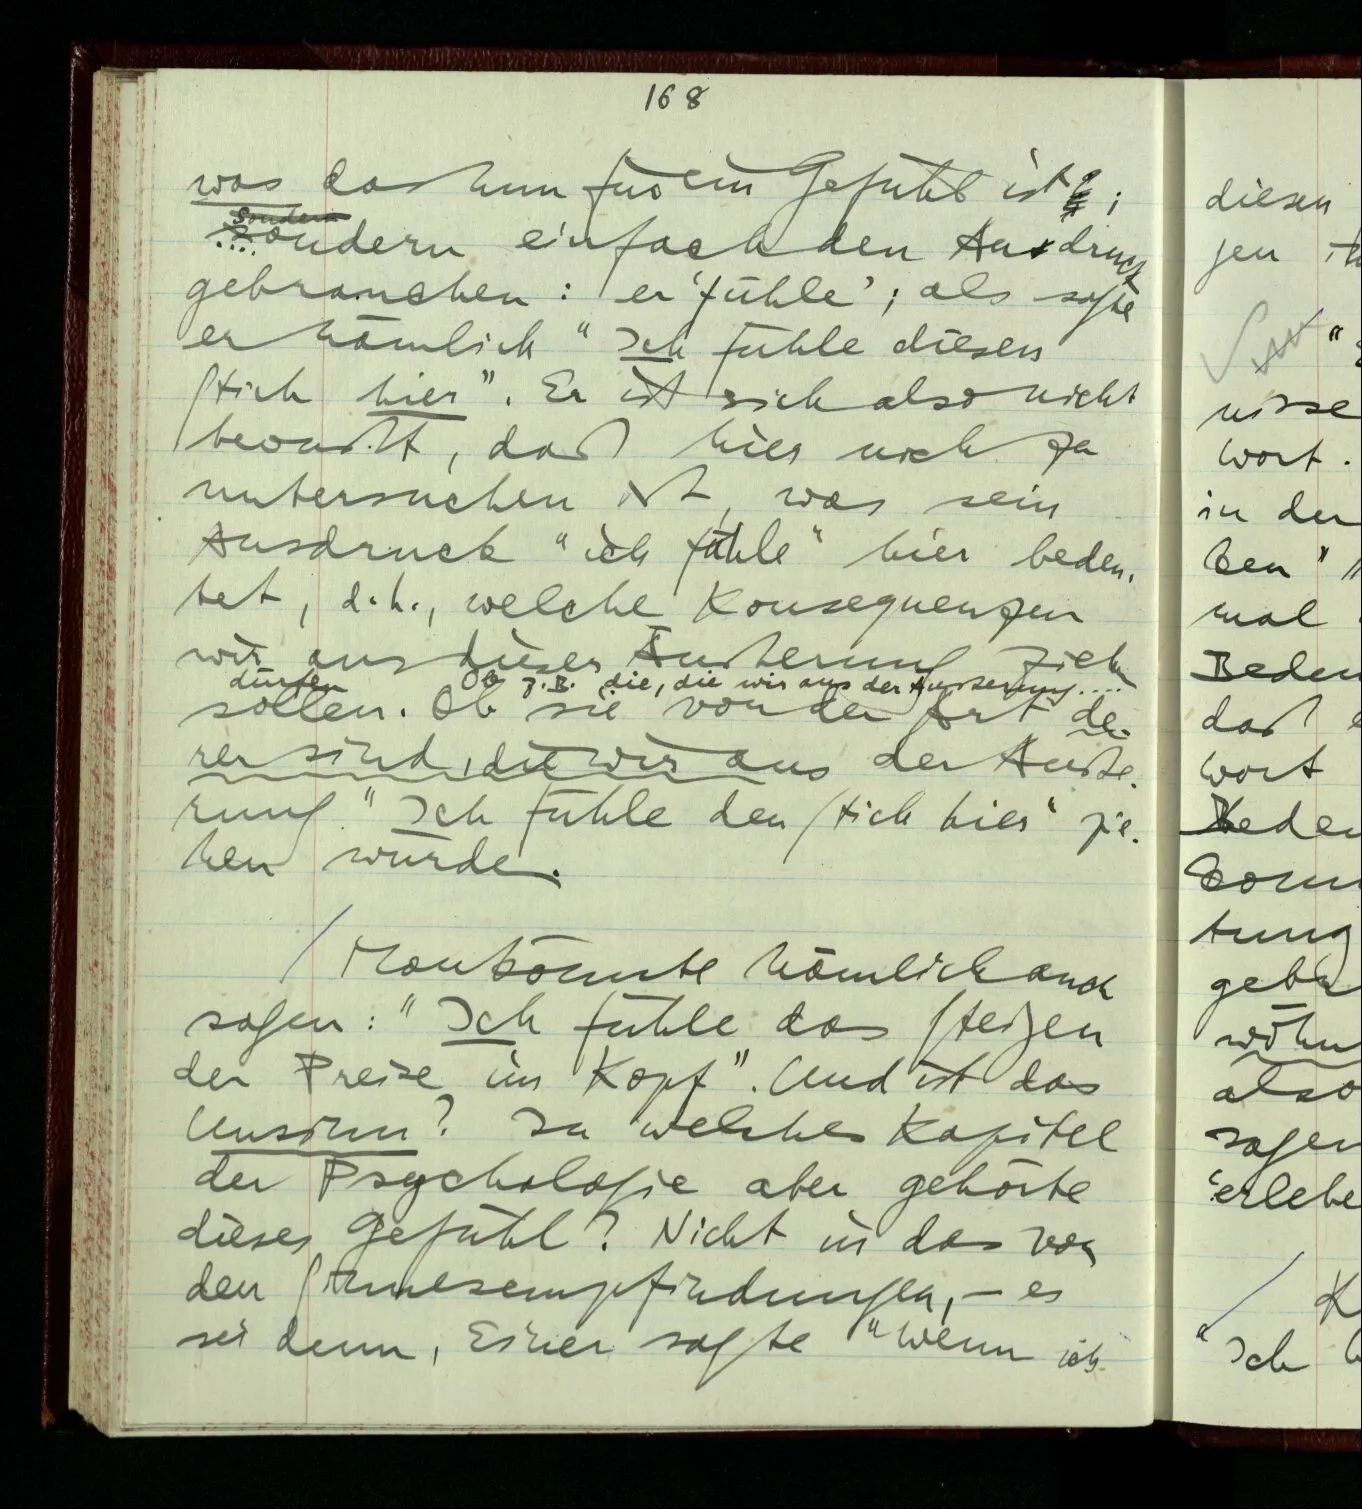 168
was das nun für ein Gefühl ist;
sondern
sondern einfach den Ausdruck
gebrauchen: er 'fühle'; als sagte
er nämlich "Ich fühle diesen
Stich hier". Er ist sich also nicht
bewußt, daß hier noch zu
untersuchen ist, was sein
Ausdruck "ich fühle" hier bedeu-
tet, d.h., welche Konsequenzen
wir aus dieser Äußerung ziehn
dürfen Ob z.B. die, die wir aus der Äusserung....
sollen. Ob sie von der Art de-
rer sind, die wir aus der Äuße-
rung "Ich fühle den Stich hier" zie-
hen würden.
Man könnte nämlich auch
sagen: "Ich fühle das Steigen
der Preise im Kopf". Und ist das
Unsinn? In welches Kapitel
der Psychologie aber gehörte
dieses Gefühl? Nicht in das von
den Sinnesempfindungen, – es
sei denn, Einer sagte "Wenn ich
diesen
jen
"
nisse
Wort.
in der
ben"
mal
Bedeu
daß
Wort
Bedeu
komm
tung
geba
wöhn
also
sagen
'erlebe
"Ich